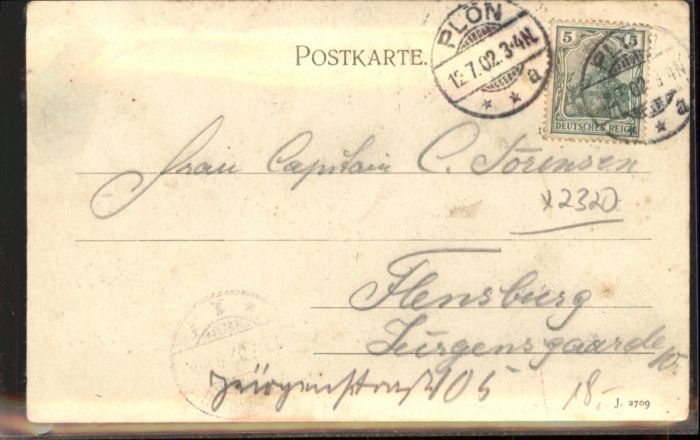 POSTKARTE.
PLÖN
12.7.02.3-4N.
* * a
5 5
DEUTSCHES REICH
Frau Capitain C. Sörensen
x2320
Flensburg
Jürgensgaarde
Jürgenstraße 105
18.-
J. 2709